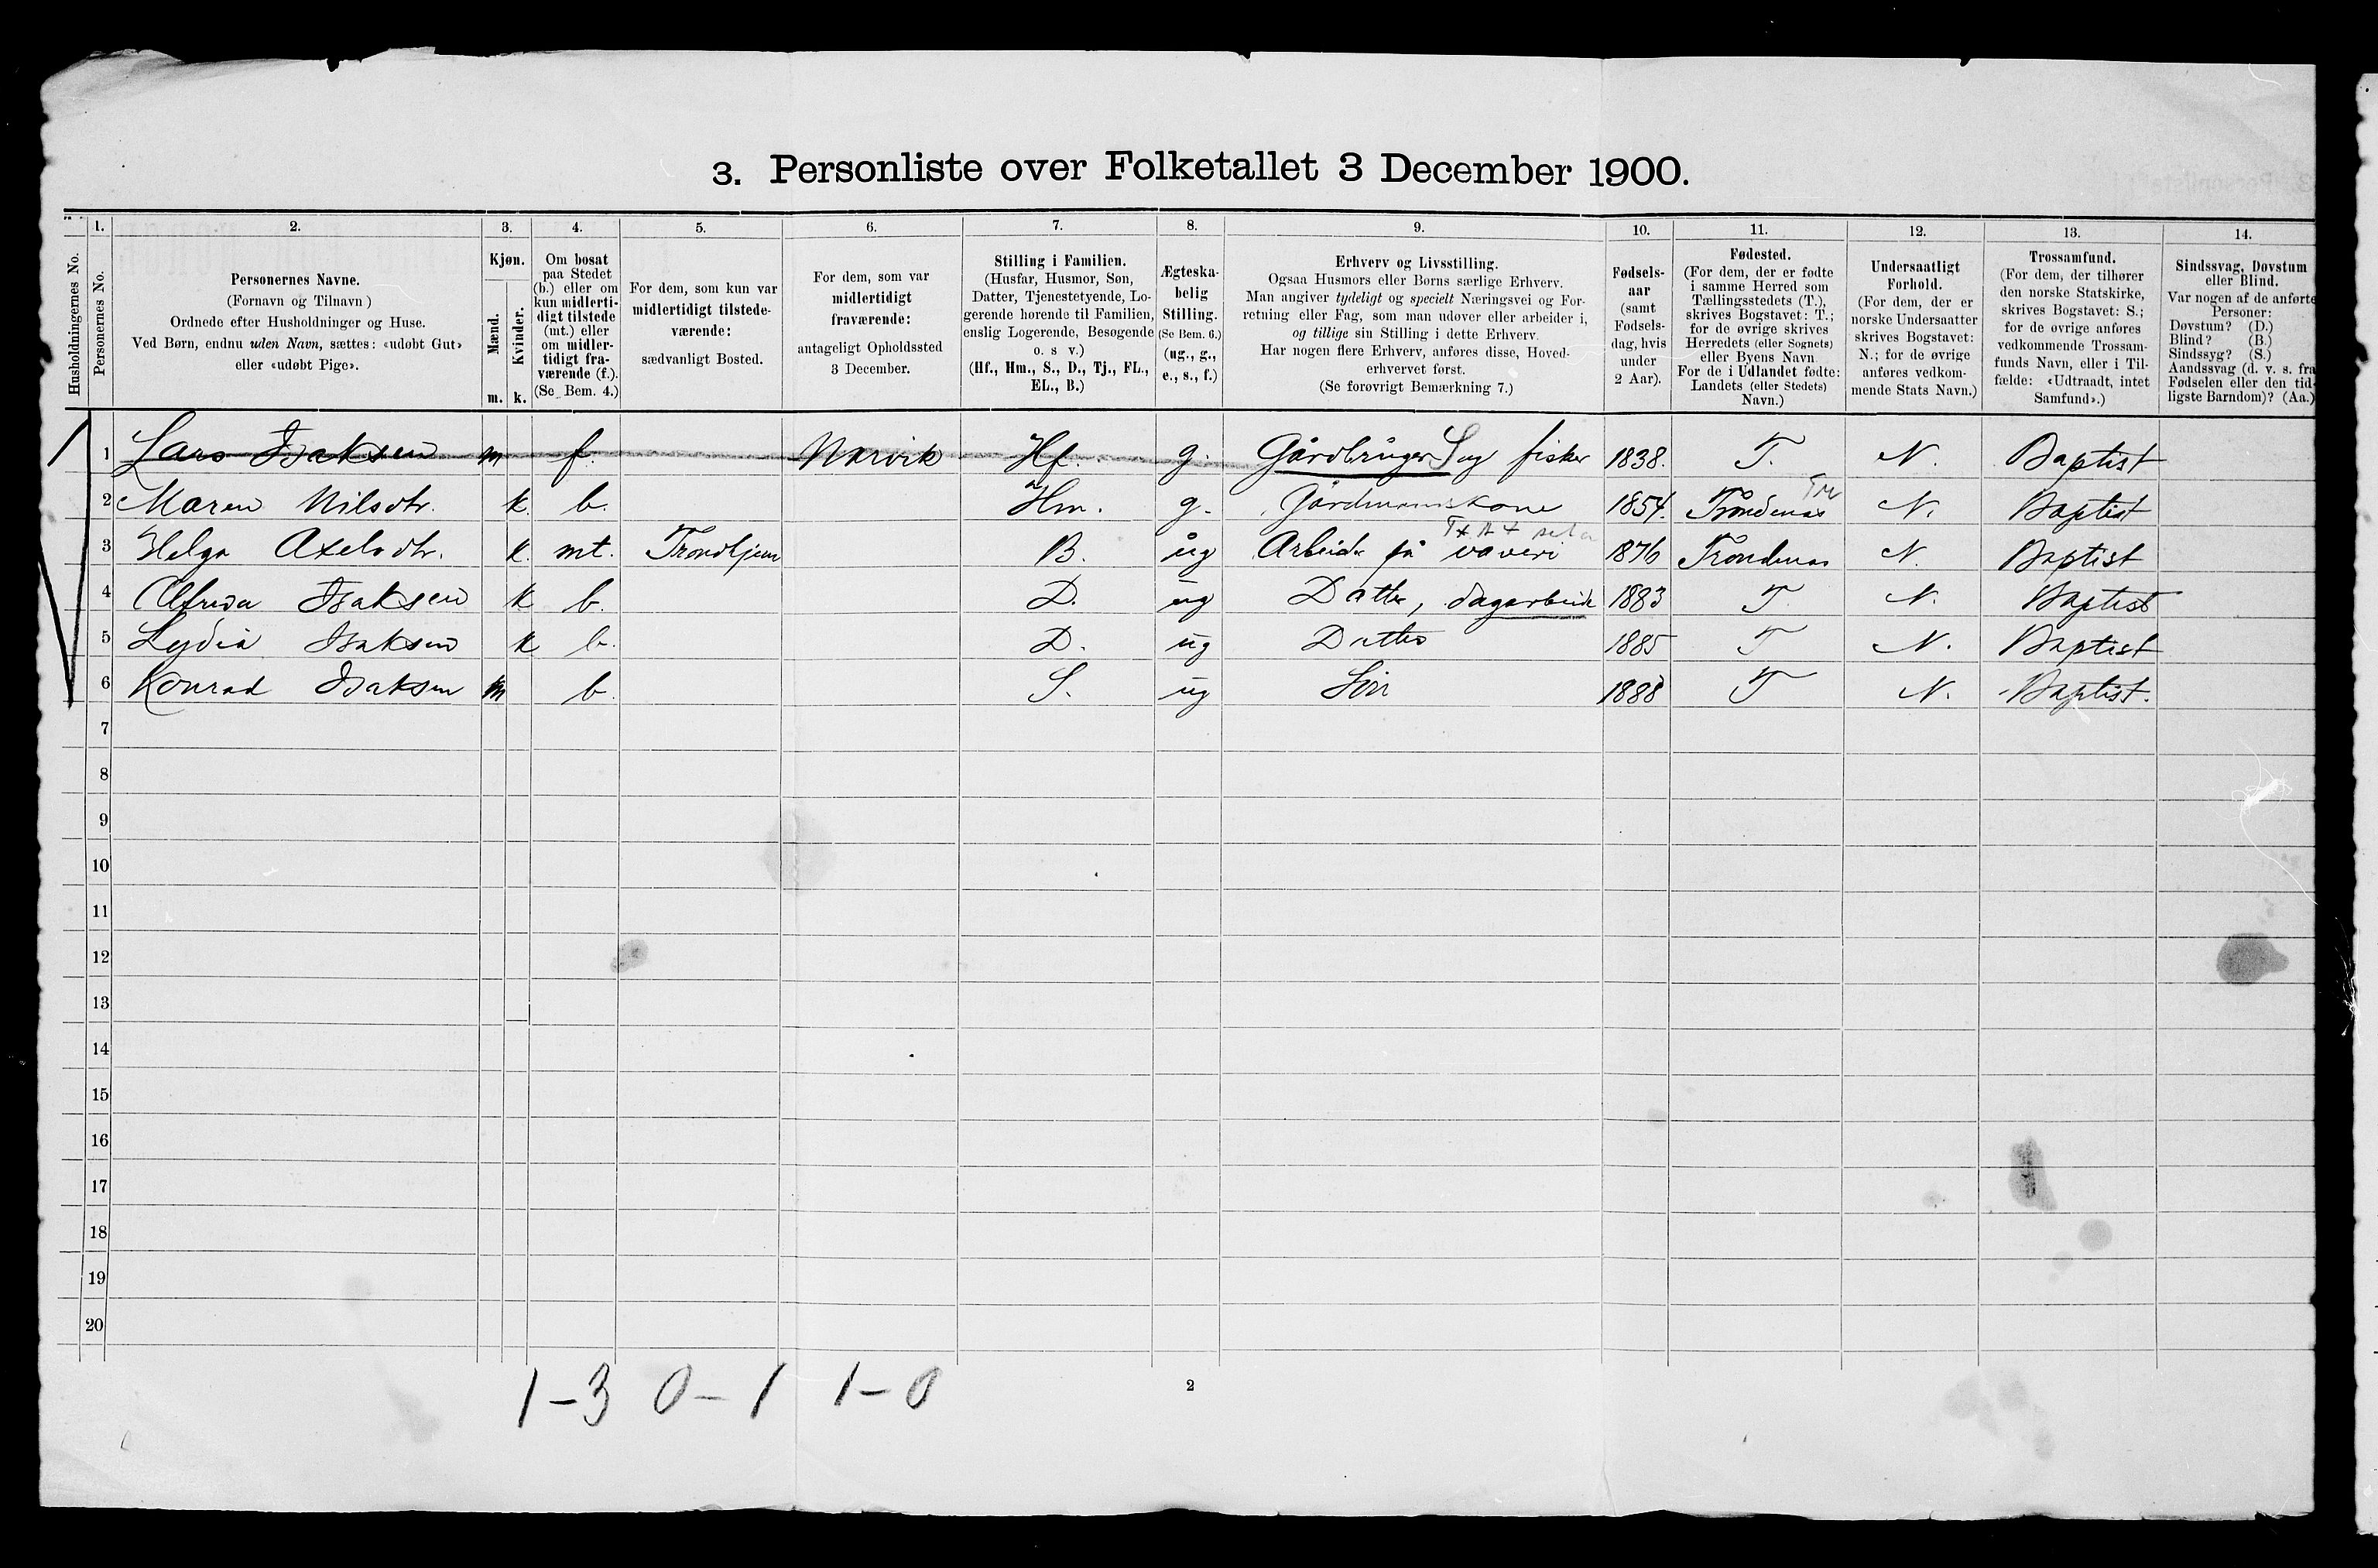 3. Personliste over Folketallet 3 December 1900.
1. 2. 3. 4. 5. 6. 7. 8. 9. 10. 11. 12. 13. 14.
Husholdningernes No.
Personernes No.
Personernes Navne.
(Fornavn og Tilnavn)
Ordnede efter Husholdninger og Huse.
Ved Børn, endnu uden Navn, sættes: «udøbt Gut»
eller «udøbt Pige».
Kjøn.
Mænd.
Kvinder.
m. k.
Om bosat
paa Stedet
(b.) eller om
kun midlerti-
digt tilstede
(mt.) eller
om midler-
tidigt fra-
værende (f.).
(Se Bem. 4.)
For dem, som kun var
midlertidigt tilstede-
værende:
sædvanligt Bosted.
For dem, som var
midlertidigt
fraværende:
antageligt Opholdssted
3 December.
Stilling i Familien.
(Husfar, Husmor, Søn,
Datter, Tjenestetyende, Lo-
gerende hørende til Familien,
enslig Logerende, Besøgende
o. s v.)
(Hf., Hm., S., D., Tj., FL.,
EL., B.)
Ægteska-
belig
Stilling.
(Se Bem. 6.)
(ug., g.,
e., s., f.)
Erhverv og Livsstilling.
Ogsaa Husmors eller Børns særlige Erhverv.
Man angiver tydeligt og specielt Næringsvei og For-
retning eller Fag, som man udøver eller arbeider i,
og tillige sin Stilling i dette Erhverv.
Har nogen flere Erhverv, anføres disse, Hoved-
erhvervet først.
(Se forøvrigt Bemærkning 7.)
Fødsels-
aar
(samt
Fødsels-
dag, hvis
under
2 Aar).
Fødested.
(For dem, der er fødte
i samme Herred som
Tællingsstedets (T.),
skrives Bogstavet: T.;
for de øvrige skrives
Herredets (eller Sognets)
eller Byens Navn
For de i Udlandet fødte:
Landets (eller Stedets)
Navn.)
Undersaatligt
Forhold.
(For dem, der er
norske Undersaatter
skrives Bogstavet:
N.; for de øvrige
anføres vedkom-
mende Stats Navn.)
Trossamfund.
(For dem, der tilhører
den norske Statskirke,
skrives Bogstavet: S.;
for de øvrige anføres
vedkommende Trossam-
funds Navn, eller i Til-
fælde: «Udtraadt, intet
Samfund».)
Sindssvag, Døvstum
eller Blind.
Var nogen af de anførte
Personer:
Døvstum? (D.)
Blind? (B.)
Sindssyg? (S.)
Aandssvag (d. v. s. fra
Fødselen eller den tid-
ligste Barndom)? (Aa.)
1 1 Lars Isaksen m f. Narvik Hf. g. Gårdbruger S og fisker 1838. T. N. Baptist
2 Maren Nilsdtr. k. b. Hm. g. Gårdmannskone 1854. Trondenæs N. Baptist
3 Helga Axelsdtr. k. mt. Trondhjem B. ug Arbeider på væveri 1876 Trondenæs N. Baptist
4 Alfrida Isaksen k b. D. ug Datter, dagarbeide 1883 T N. Baptist
5 Lydia Isaksen k b. D. ug Datter 1885 T N. Baptist
6 Konrad Isaksen m b. S. ug Søn 1888 T N. Baptist.
7
8
9
10
11
12
13
14
15
16
17
18
19
20
1-3 0-1 1-0
2